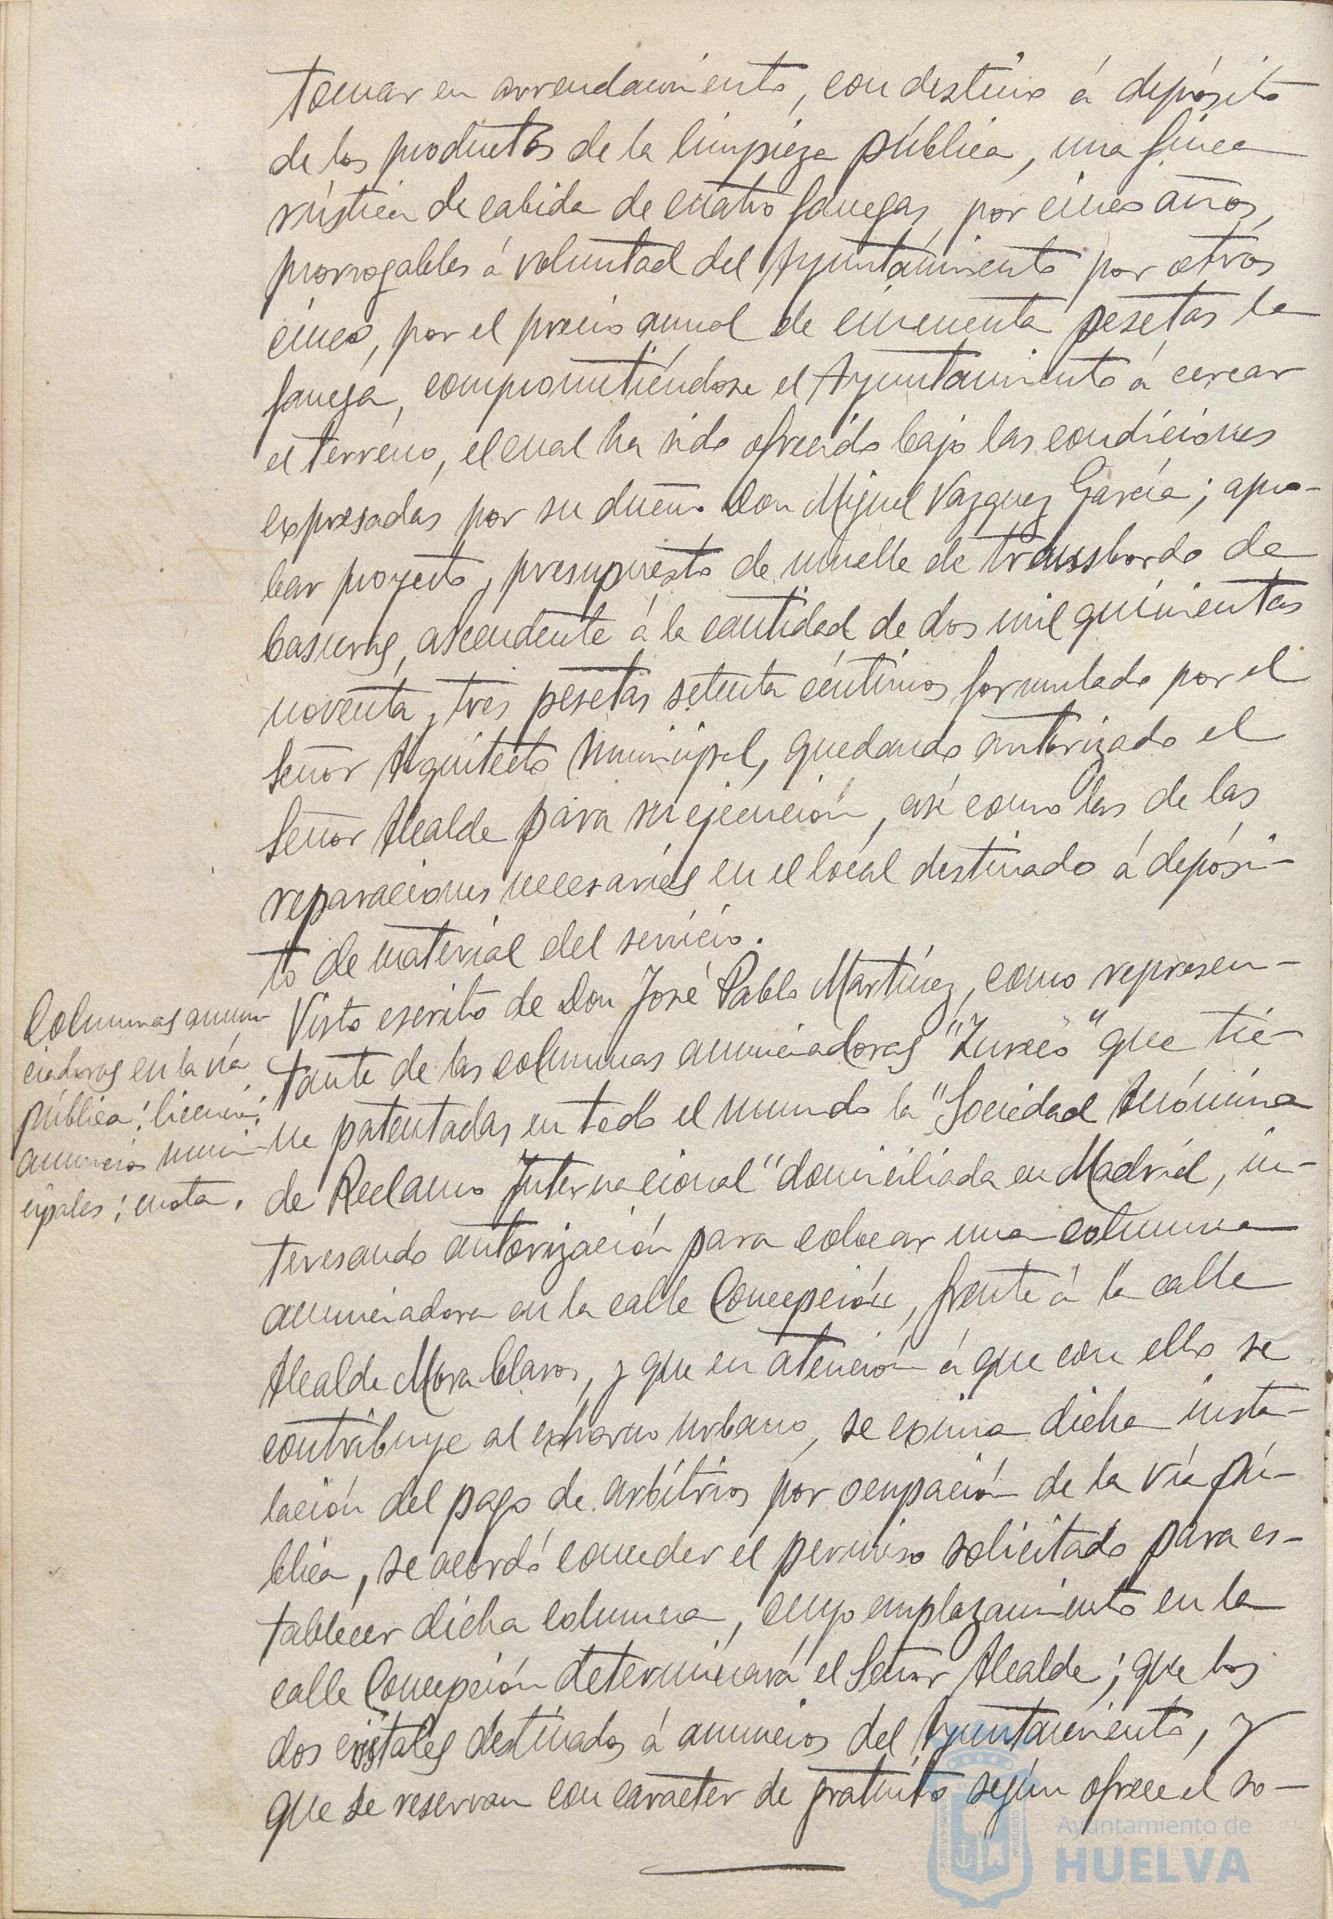 tomar en arrendamiento, con destino á depósito
de los productos de la limpieza pública, una finca
rústica de cabida de cuatro fanegas, por cinco años,
prorrogables á voluntad del Ayuntamiento por otros
cinco, por el precio anual de cincuenta pesetas la
fanega, comprometiéndose el Ayuntamiento á cercar
el terreno, el cual ha sido ofrecido bajo las condiciones
expresadas por su dueño Don Miguel Vazquez García; apro-
bar proyecto y presupuesto de muelle de transbordo de
basuras, ascendente á la cantidad de dos mil quinientas
noventa y tres pesetas setenta céntimos formulado por el
Señor Arquitecto Municipal, quedando autorizado el
Señor Alcalde para su ejecución, así como las de las
reparaciones necesarias en el local destinado á depósi-
to de material del servicio.
Columnas anun-
ciadoras en la vía
pública; licencia;
anuncios muni-
cipales; cuota.
Visto escrito de Don José Pablo Martínez, como represen-
tante de las columnas anunciadoras "que tie-
ne patentadas en todo el mundo la "Sociedad Anónima
de Reclamo Internacional" domiciliada en Madrid, in-
teresando autorización para colocar una columna
anunciadora en la calle Concepción, frente á la calle
Alcalde Mora Claros, y que en atención á que con ello se
contribuye al exhorno urbano, se exima dicha insta-
lación del pago de arbítrios por ocupación de la vía pú-
blica, se acordó conceder el permiso solicitado para es-
tablecer dicha columna, cuyo emplazamiento en la
calle Concepción determinará el Señor Alcalde; que los
dos cristales destinados á anuncios del Ayuntamiento, y
que se reservan con caracter de gratuito según ofrece el so-
Ayuntamiento de
HUELVA